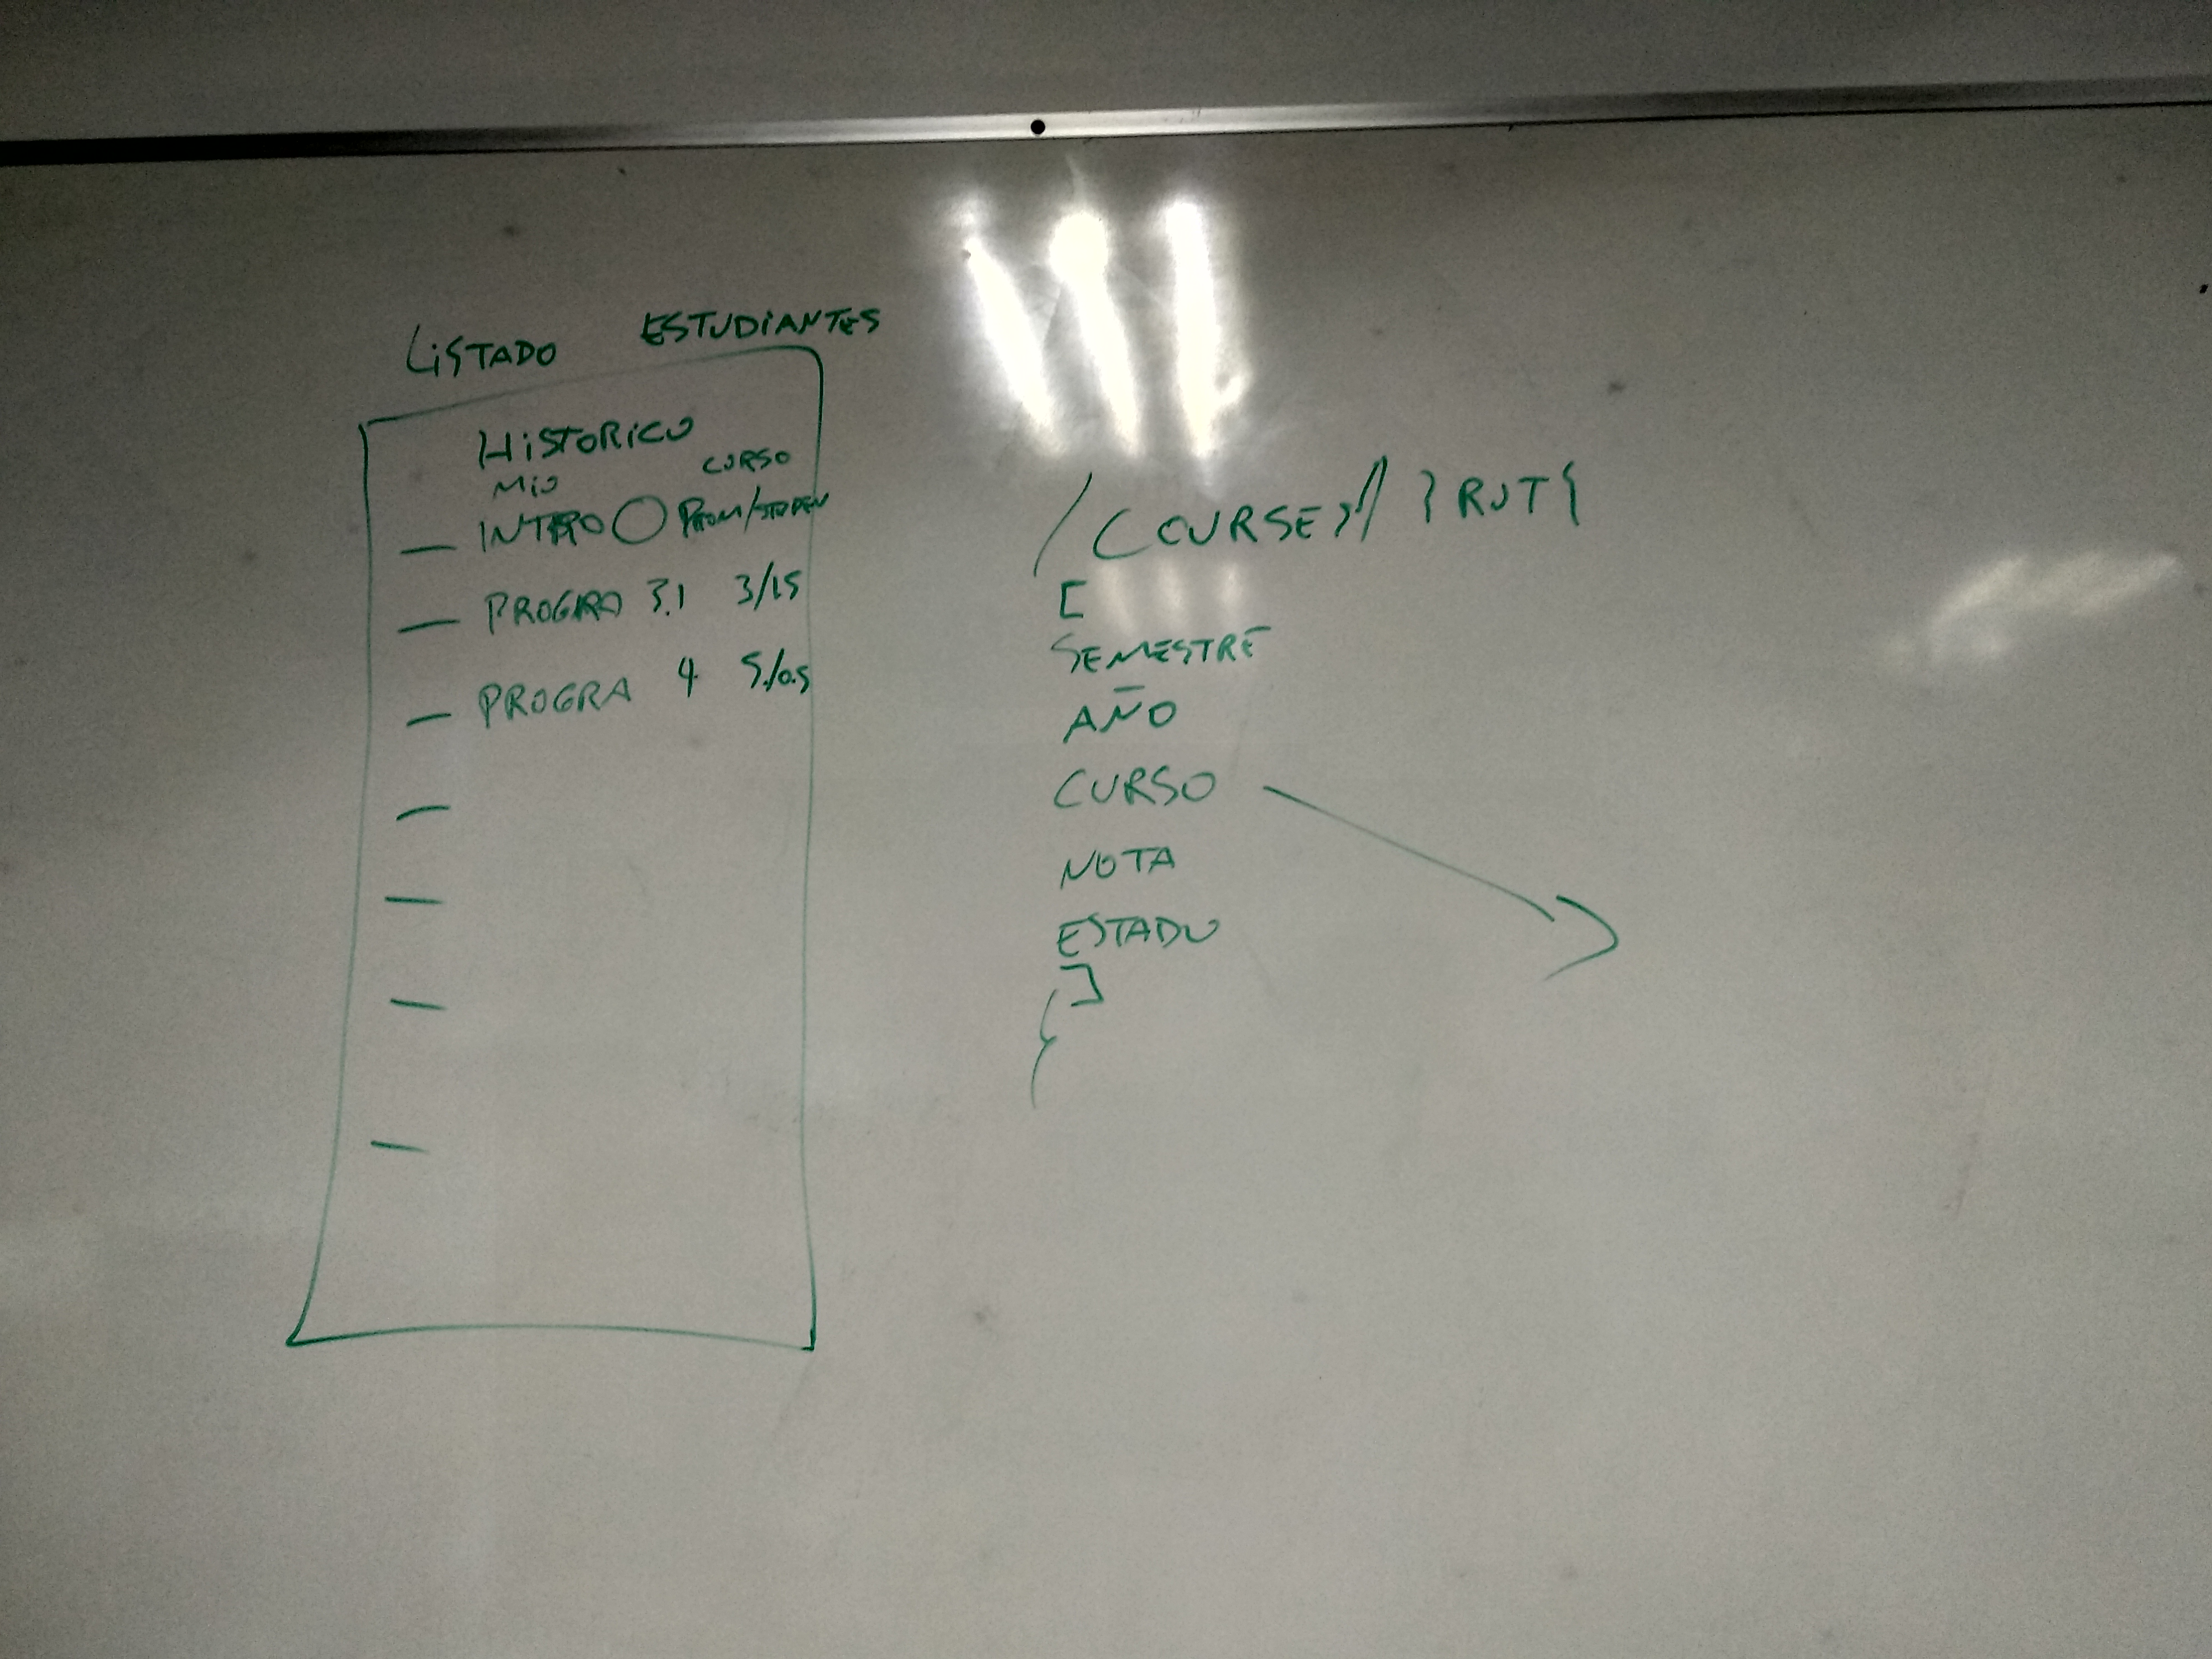 LiSTADO ESTUDiANTES
HiSTORiCO
MiO CURSO
INTRO PROM/STDDEV
PROGRA 3.1 3/1.5
PROGRA 4 5./0.5
/COURSES/ }RUT{
[
SEMESTRE
AÑO
CURSO
NOTA
ESTADO
]